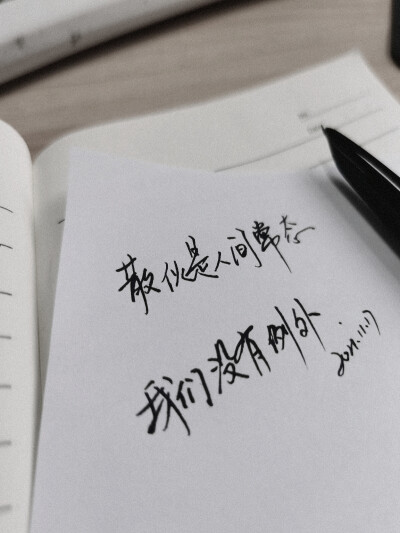 散伙是人间常态
我们没有例外
2021.11.17